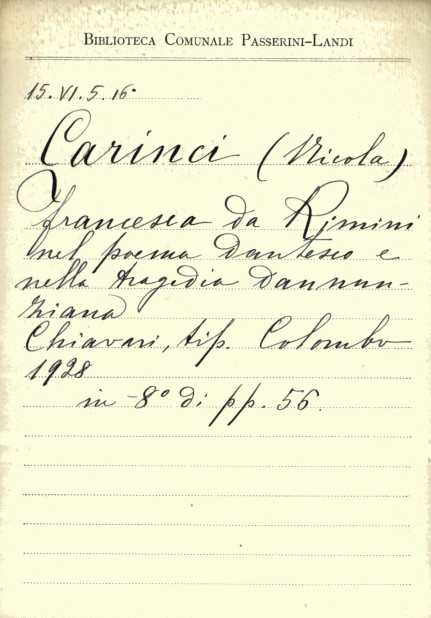 BIBLIOTECA COMUNALE PASSERINI-LANDI
15.VI.5.16
Carinci (Nicola)
Francesca da Rimini
nel poema Dantesco e
nella tragedia Dannun-
ziana
Chiavari, tip. Colombo
1928
in-8° di pp. 56.